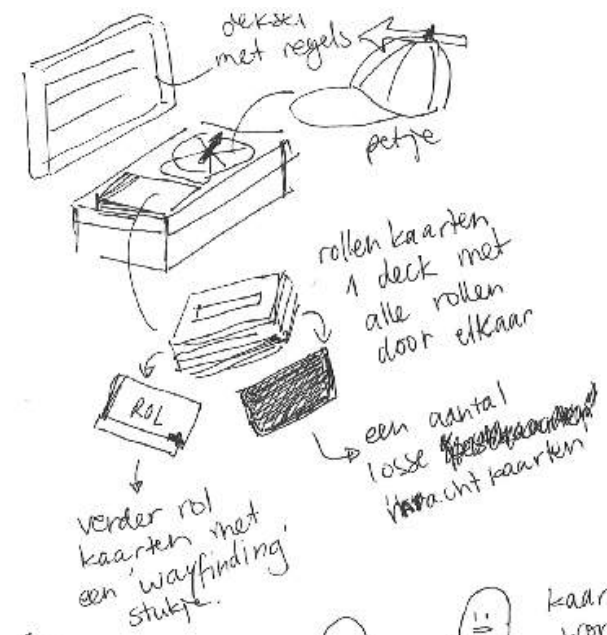 deksel
met regels
petje
rollenkaarten
1 deck met
alle rollen
door elkaar
ROL
een aantal
losse
kaarten
verder rol
kaarten met
een 'wayfinding'
stukje.
kaar